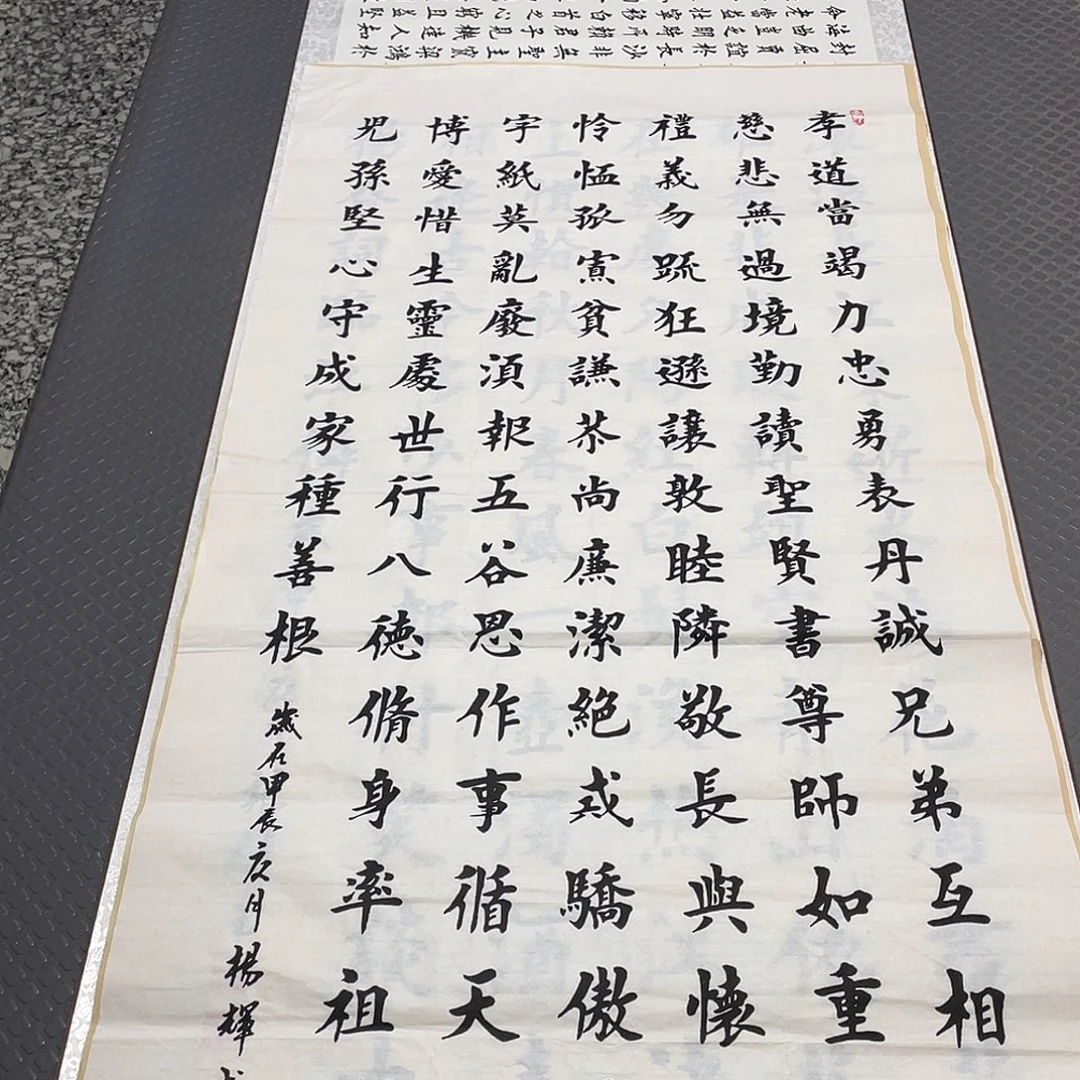 孝道當竭力忠勇表丹誠兄弟互相
慈悲無過境勤讀聖賢書尊師如重
禮義勿疏狂遜讓敦睦隣敬長與懷
怜恤孤寡貧謙恭尚廉潔絕戒驕傲
字紙莫亂廢須報五谷恩作事循天
博愛惜生靈處世行八德脩身率祖
児孫堅心守成家種善根
歲在甲辰 月楊輝